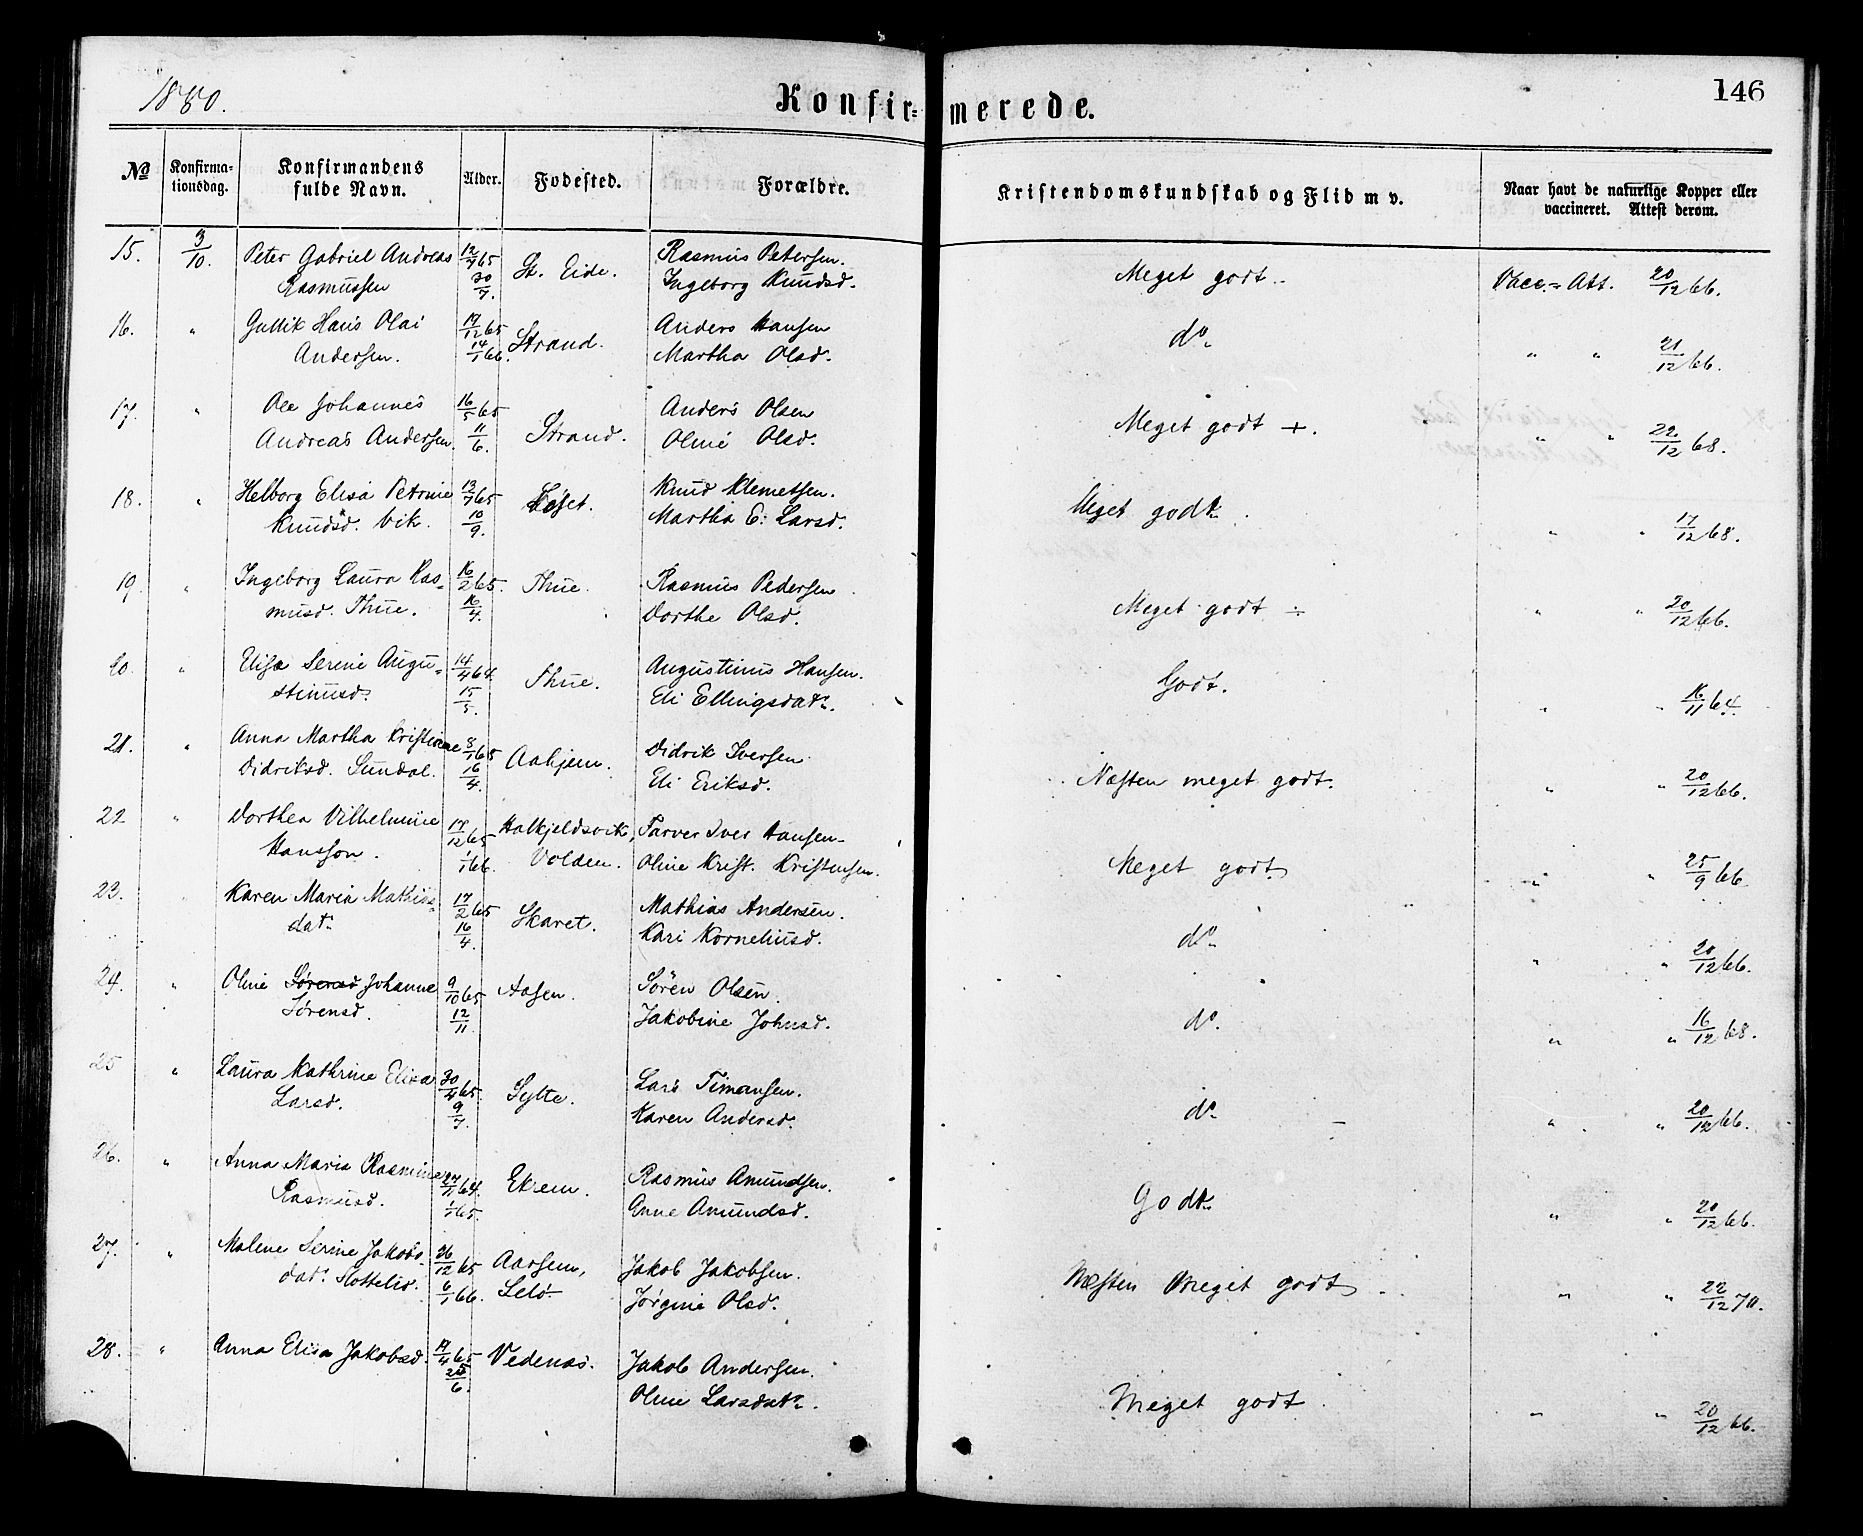 1880.
Konfir=merede.
146
No
Konfirma-tionsdag.
Konfirmandens fulde Navn.
Alder.
Fodested.
Forældre.
Kristendomskundskab og Flid m v.
Naar havt de naturlige Kopper eller vaccineret. Attest derom.
15. 3/10. Peter Gabriel Andreas 12/7 65 St. Eide. Rasmus Petersen. Meget godt. Vacc.= Att. 20/12 66.
Rasmussen 30/7. Ingeborg Knudsd.
16. " Gullik Hans Olai 17/12 65 Strand. Anders Hansen do. " " 21/12 66.
Andersen. 14/1 66. Martha Olsd.
17. " Ole Johannes 16/5 65 Strand. Anders Olsen Meget godt +. " " 22/12 68.
Andreas Andersen. 11/6. Oline Olsd.
18. " Helborg Elisa Petrine 13/7 65 Løset. Knud Klemetsen. Meget godt. " " 17/12 68.
Knudsd. Vik. 10/9. Martha E. Larsd.
19. " Ingeborg Laura Ras= 16/2 65. Thue. Rasmus Pedersen Meget godt ÷ " " 20/12 66.
musd. Thue. 16/4. Dorthe Olsd.
20. " Serine Augu= 14/4 64. Thue. Augustinus Hansen. Godt. " " 16/11 64.
stinusd. 15/5. Eli Ellingsdatr.
21. " Anna Martha Kristine 8/1 65 Aahjem. Didrik Iversen Næsten meget godt. " " 20/12 66.
Didriksd. Sundal. 16/4. Eli Eriksd.
22 " Dorthea Vilhelmine 17/12 65 Halkjeldsvik, Farver Iver Hansen Meget godt " " 25/9 66.
Hansson. 1/1 66. Volden. Oline Krist. Kristensen.
23. " Karen Maria Mathias= 17/2 65 Skaret. Mathias Andersen. do. " " 20/12 66.
datr. 16/4. Kari Korneliusd.
24. " Oline Sørensd Johanne 9/10 65 Aasen. Søren Olsen. do. " " 16/12 68.
Sørensd. 12/11. Jakobine Johnsd.
25 " Laura Kathrine Elisa 30/4 65. Sylte. Lars Timansen. do. " " 20/12 66.
Larsd. 9/7. Karen Andersd.
26. " Anna Maria Rasmine 27/11 64. Ekrem. Rasmus Amundsen. Godt. " " 20/12 66.
Rasmusd. 1/1 65. Anne Amundsd.
27. " Malene Serine Jakobs= 26/12 65 Aarsem, Jakob Jakobsen. Næsten Meget godt " " 22/12 70.
datr. Slottelid. 6/1 66. Selø. Jørgine Olsd.
28. " Anna Elisa Jakobsd. 17/4 65 Vedenes. Jakob Andersen. Meget godt " " 20/12 66.
25/6. Oline Larsdatr.